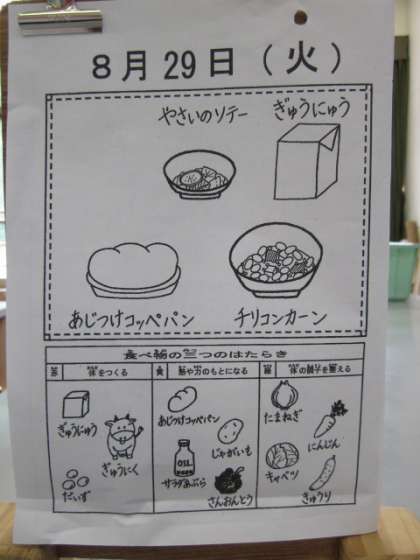 8月29日(火)
やさいのソテー
ぎゅうにゅう
あじつけコッペパン
チリコンカーン
食べ物の三つのはたらき
赤 体をつくる
黄 熱や力のもとになる
緑 体の調子を整える
ぎゅうにゅう
ぎゅうにく
だいず
あじつけコッペパン
じゃがいも
OIL
サラダあぶら
さんおんとう
たまねぎ
にんじん
キャベツ
きゅうり